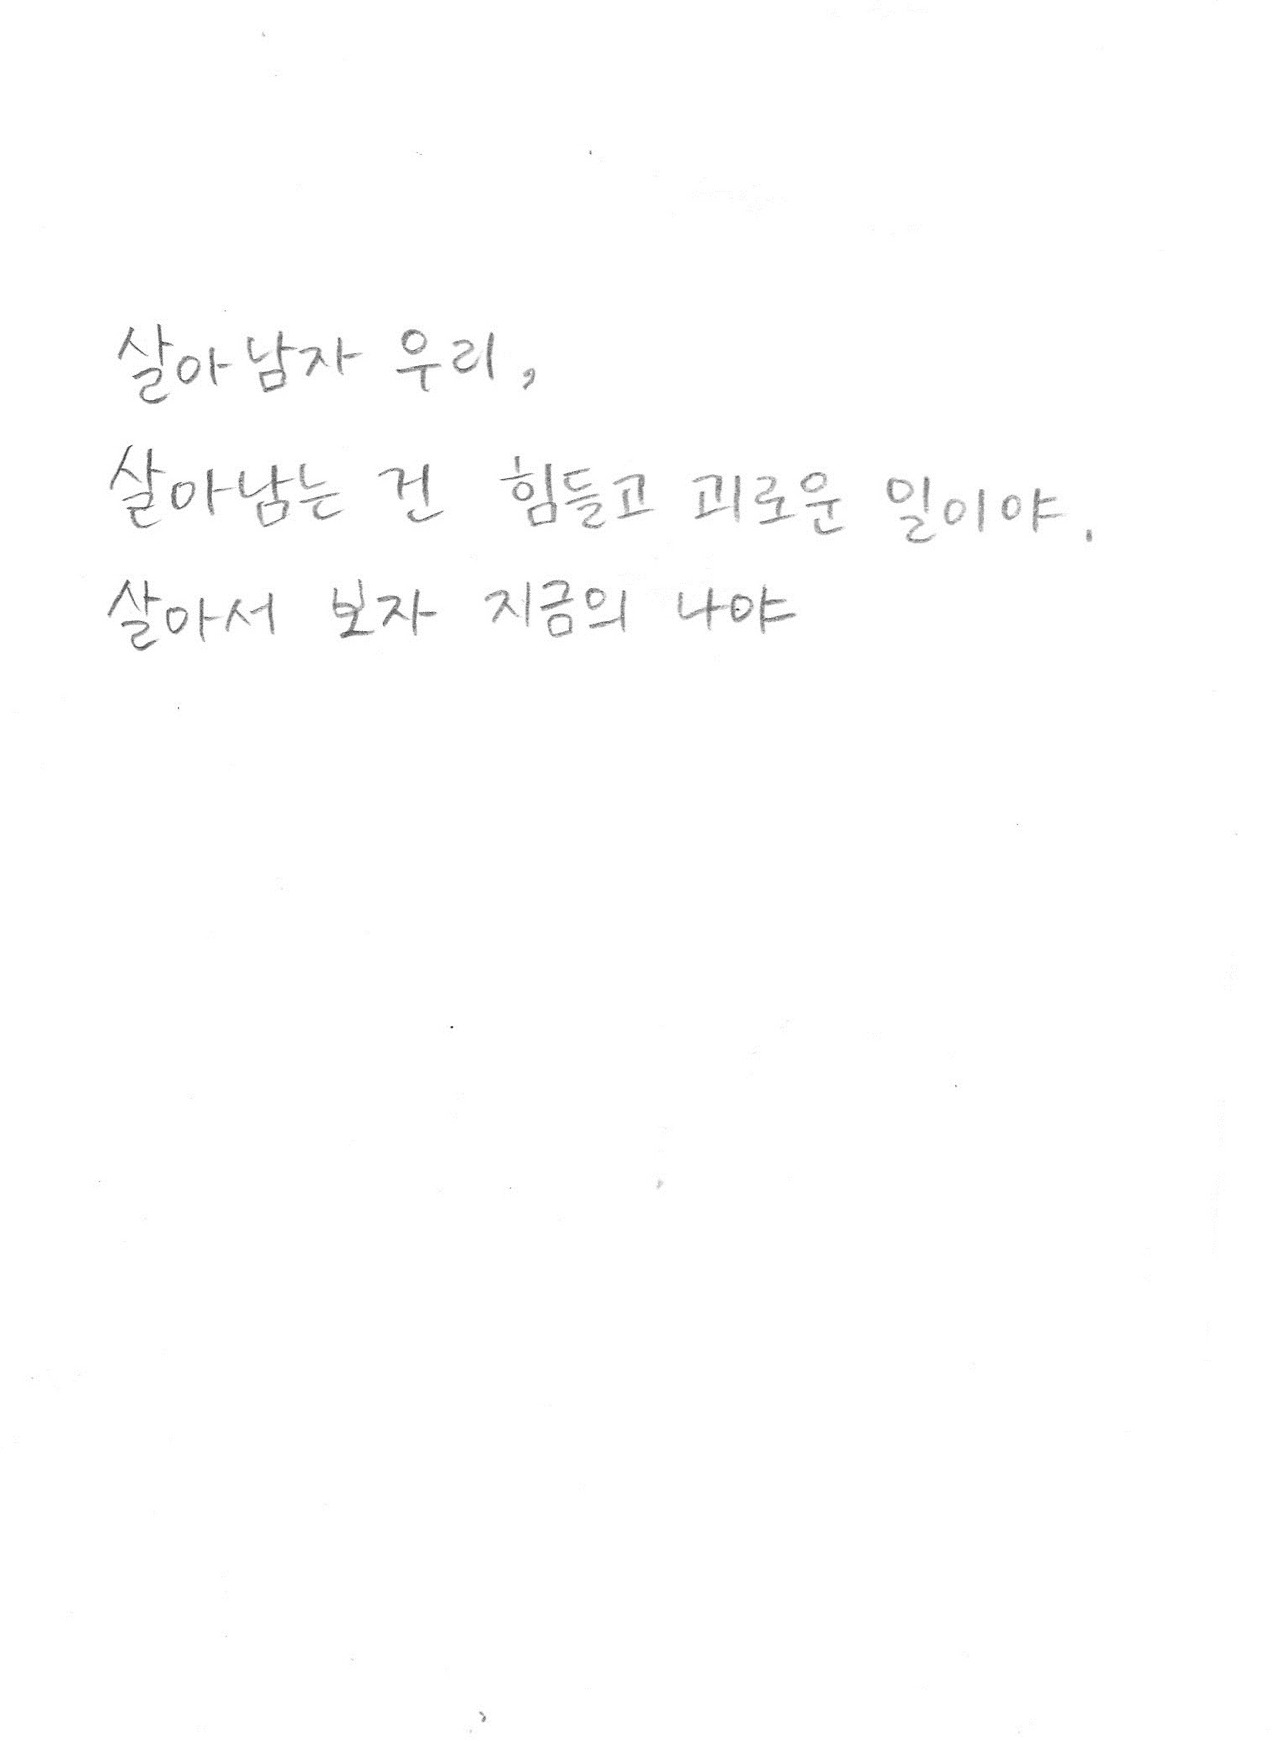 살아남자 우리,
살아남는 건 힘들고 괴로운 일이야.
살아서 보자 지금의 나야